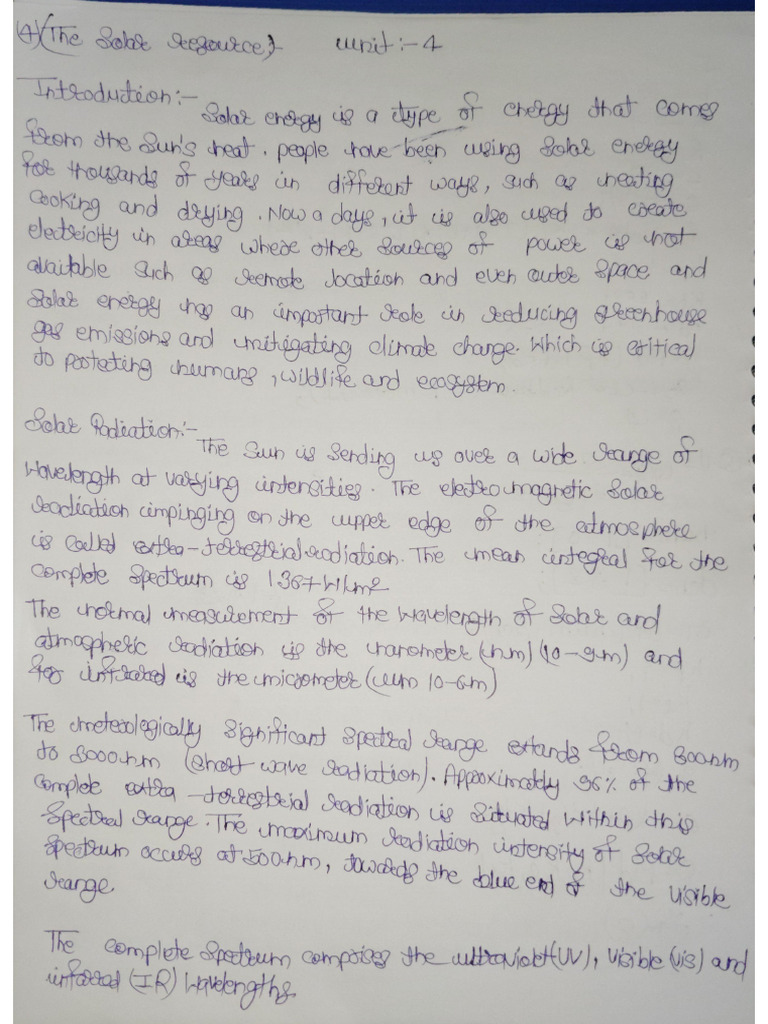 4) (The Solar resource) Unit:- 4
Introduction:-
Solar energy is a type of energy that comes
from the Sun's heat. people have been using Solar energy
for thousands of years in different ways, such as heating
cooking and drying. Now a days, it is also used to create
electricity in areas where other sources of power is not
available such as remote location and even outer space and
solar energy has an important role in reducing greenhouse
gas emissions and mitigating climate change. Which is critical
to protecting humans, wildlife and ecosystem.
Solar Radiation:-
The Sun is sending us over a wide range of
wavelength at varying intensities. The electromagnetic Solar
radiation impinging on the upper edge of the atmosphere
is called extra-terrestrial radiation. The mean integral for the
complete Spectrum is 1367 W/m2
The normal measurement of the wavelength of Solar and
atmospheric radiation is the nanometer (nm) (10-9m) and
for infrared is the micrometer (um 10-6m)
The meterologically Significant Spectral range extands from 300nm
to 3000nm (short wave radiation). Approximately 96% of the
complete extra-terrestrial radiation is situated within this
Spectral range. The maximum radiation intensity of Solar
Spectrum occurs at 500nm, towards the blue end of the visible
range.
The complete Spectrum comprises the ultraviolet (UV), visible (vis) and
infrared (IR) Wavelengths